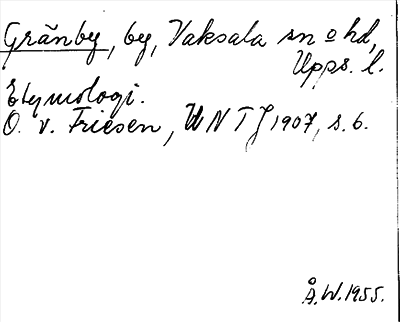 Gränby, by, Vaksala sn o hd,
Upps. l.
Etymologi.
O. v. Friesen, UNTJ 1907, s. 6.
Å.W. 1955.